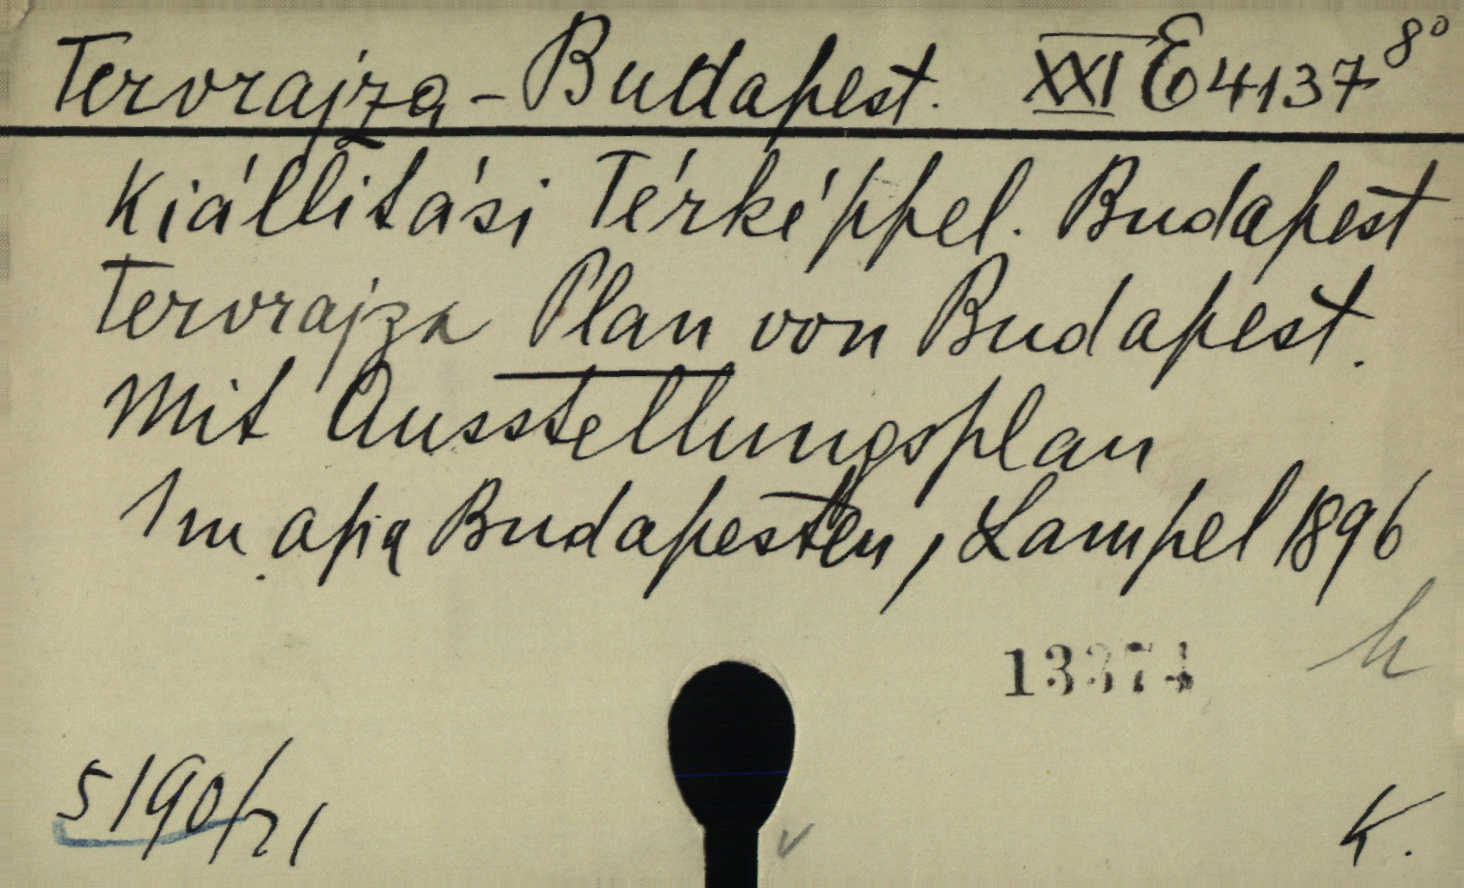 Tervrajza - Budapest. XXI E 4137 8°
Kiállitási Térképpel. Budapest
Tervrajza Plan von Budapest.
Mit Ausstellungsplan
1 m. apia Budapesten, Lampel 1896
13374
h
5190/21
K.